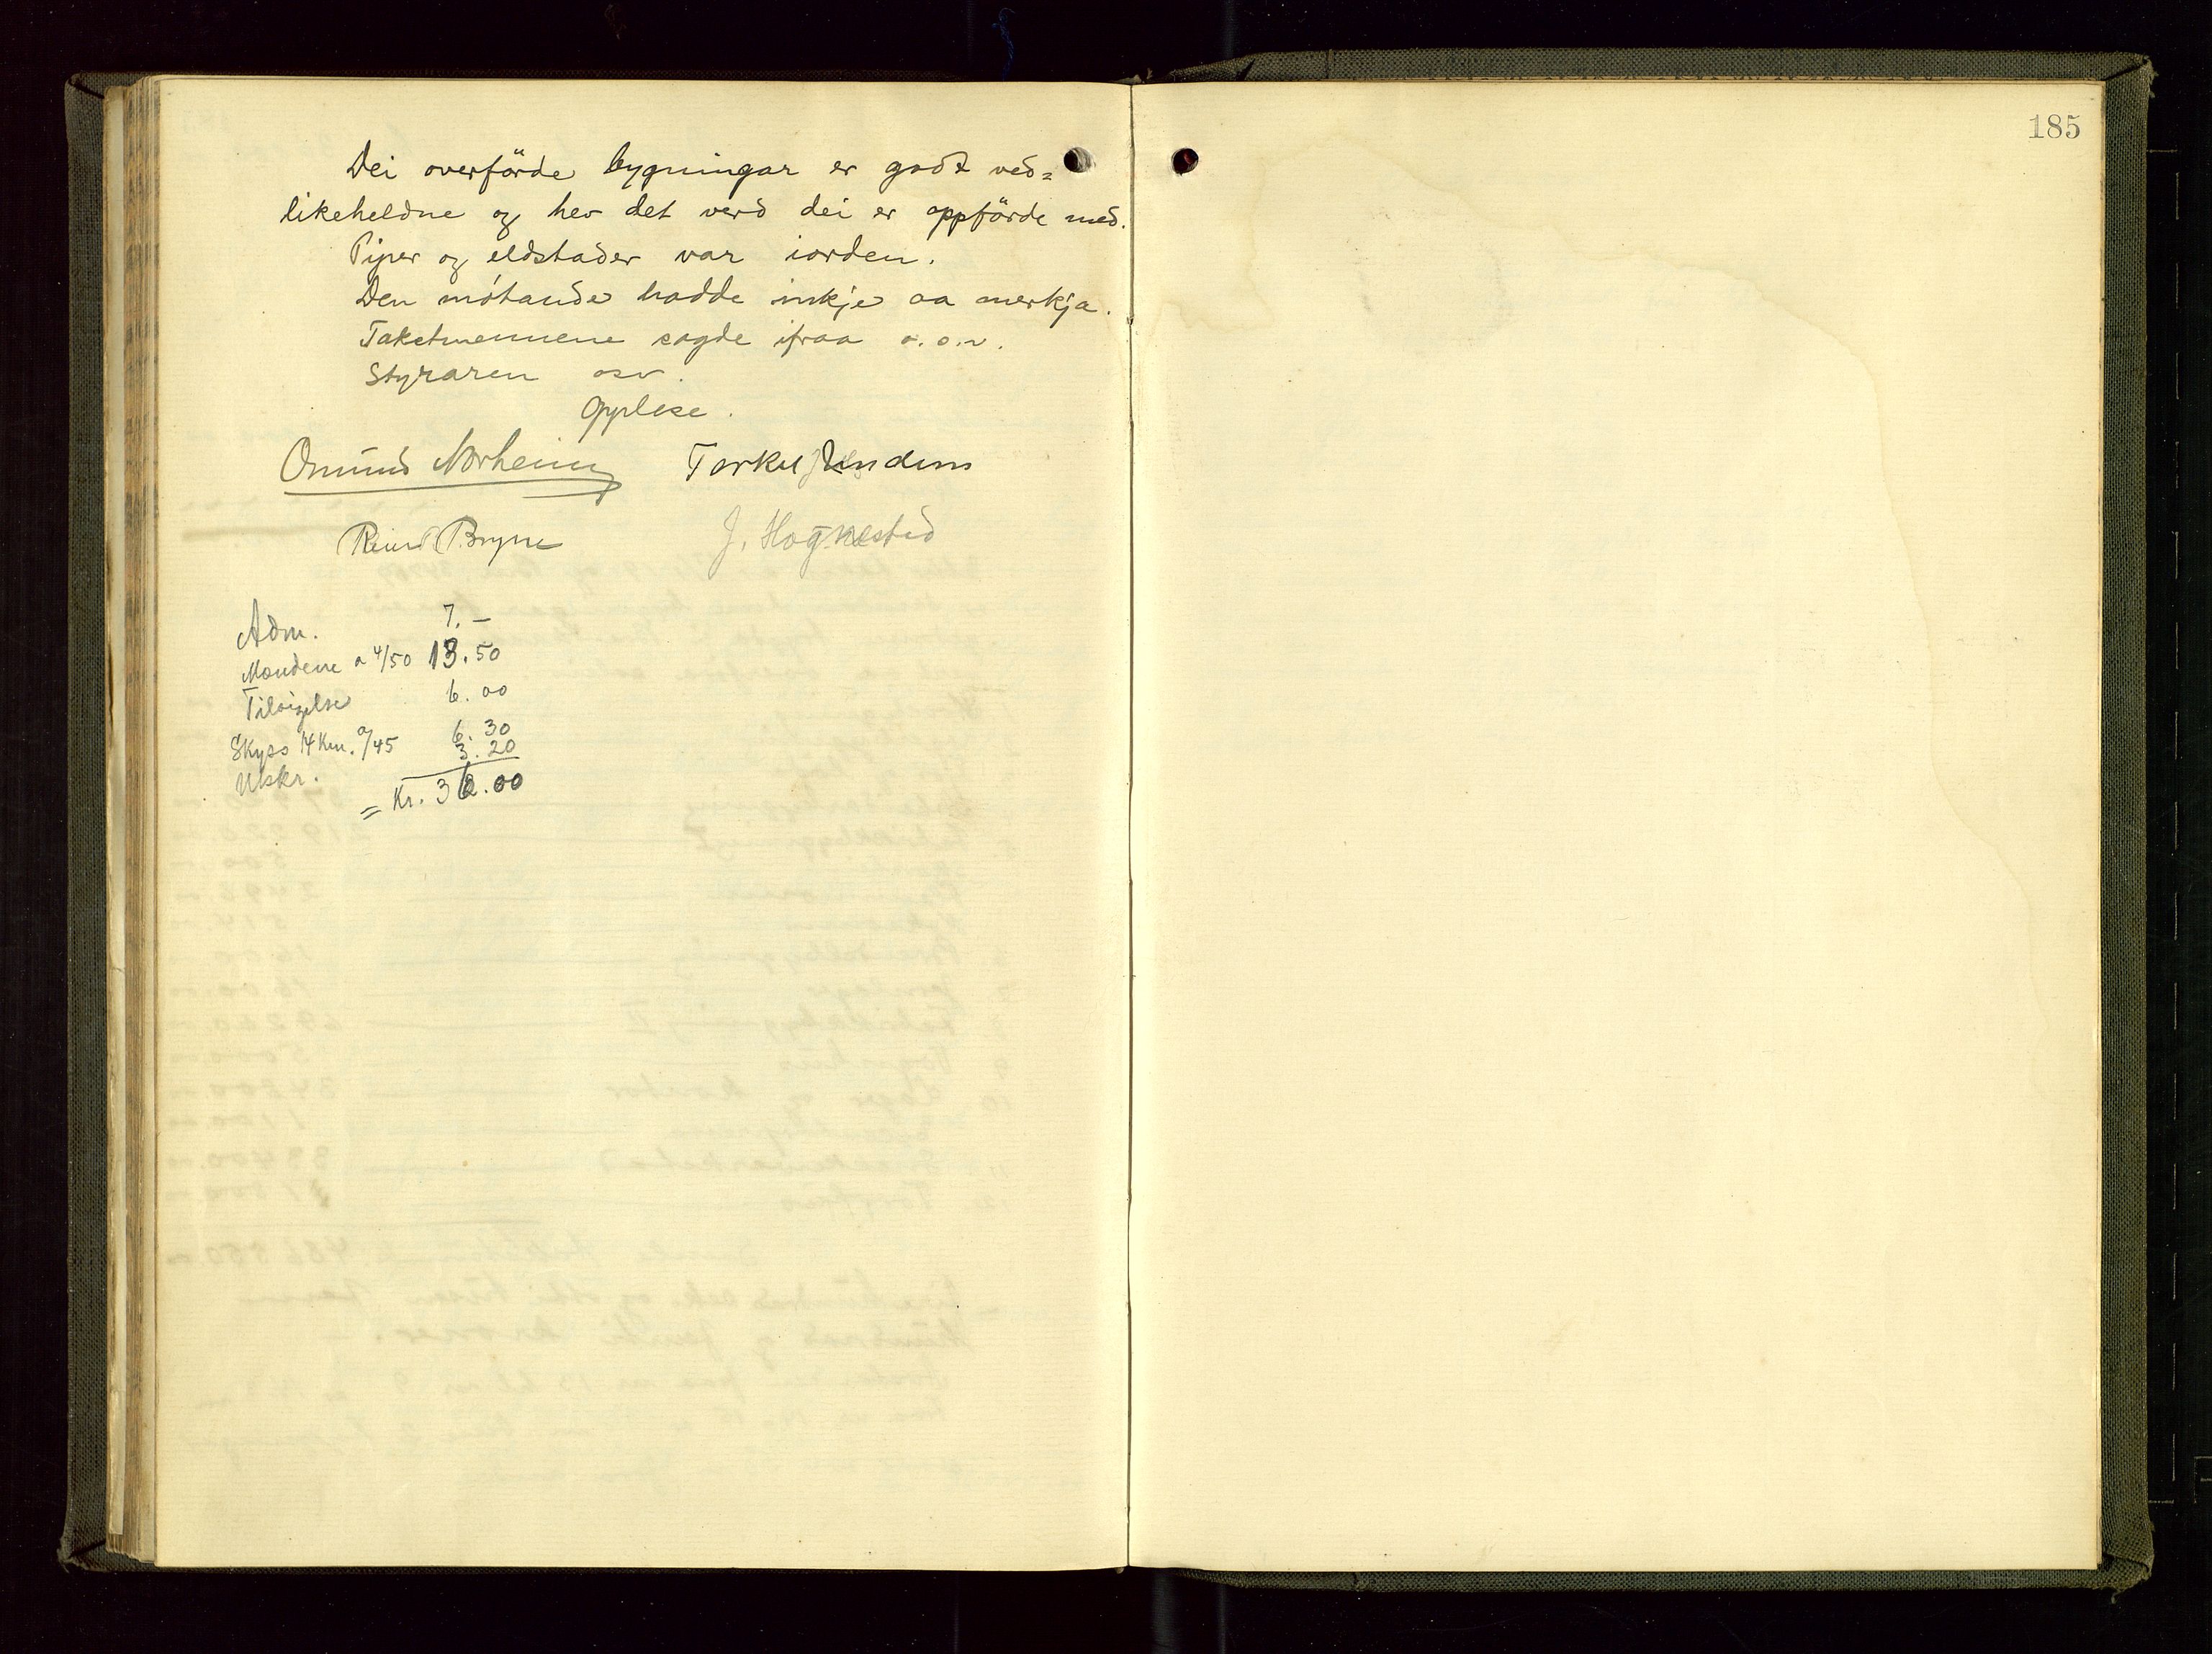 185
Dei overförde bygningar er godt ved=
likeheldne og hev det verd dei er oppförde med.
Piper og eldstader var iorden.
Den mótande hadde inkje aa merkja.
Takstmennene sagde ifraa o.s.v.
Styraren osv.
Opplese.
Onund Norheim Torkel
Bryne J. Hognestad
Adm. 7.–
Mændene a 4/50 13.50
Tilsigelse 6.00
Skyss 14 Km. a/45 6.30
Utskr. 3.20
= Kr. 36.00